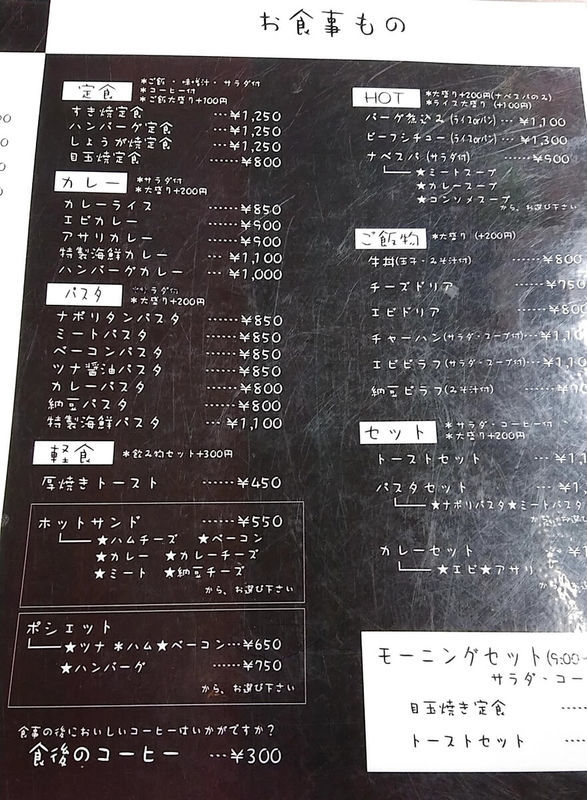 お食事もの
定食 *ご飯・味噌汁・サラダ付
*コーヒー付
*ご飯大盛り+100円
すき焼定食 …¥1,250
ハンバーグ定食 …¥1,250
しょうが焼定食 …¥1,250
目玉焼定食 ……¥800
カレー *サラダ付
*大盛り+200円
カレーライス ……¥850
エビカレー ……¥900
アサリカレー ……¥900
特製海鮮カレー …¥1,100
ハンバーグカレー …¥1,000
パスタ *サラダ付
*大盛り+200円
ナポリタンパスタ ……¥850
ミートパスタ ……¥850
ベーコンパスタ ……¥850
ツナ醤油パスタ ……¥850
カレーパスタ ……¥800
納豆パスタ ……¥800
特製海鮮パスタ …¥1,100
軽食 *飲み物セット+300円
厚焼きトースト ……¥450
ホットサンド ……¥550
★ハムチーズ ★ベーコン
★カレー ★カレーチーズ
★ミート ★納豆チーズ
から、お選び下さい
ポシェット
★ツナ *ハム★ベーコン…¥650
★ハンバーグ ……¥750
から、お選び下さい
食事の後においしいコーヒーはいかがですか?
食後のコーヒー …¥300
HOT *大盛り+200円(ナベスパのみ)
*ライス大盛り (+100円)
バーグ煮込み(ライスorパン) …¥1,100
ビーフシチュー(ライスorパン) …¥1,300
ナベスパ(サラダ付) ……¥900
★ミートスープ
★カレースープ
★コンソメスープ
から、お選び下さい
ご飯物 *大盛り (+200円)
牛丼(玉子・みそ汁付) ……¥800
チーズドリア ……¥750
エビドリア ……¥800
チャーハン(サラダ・スープ付)…¥1,10
エビピラフ(サラダ・スープ付)…¥1,10
納豆ピラフ(みそ汁付) …¥1,10
セット *サラダ・コーヒー付
*大盛り+200円
トーストセット …¥1,1
パスタセット …¥1,
★ナポリパスタ★ミートパスタ
から、お選び
カレーセット …¥1
★エビ★アサリ
から
モーニングセット(9:00-
サラダ・コー
目玉焼き定食 ……
トーストセット ……